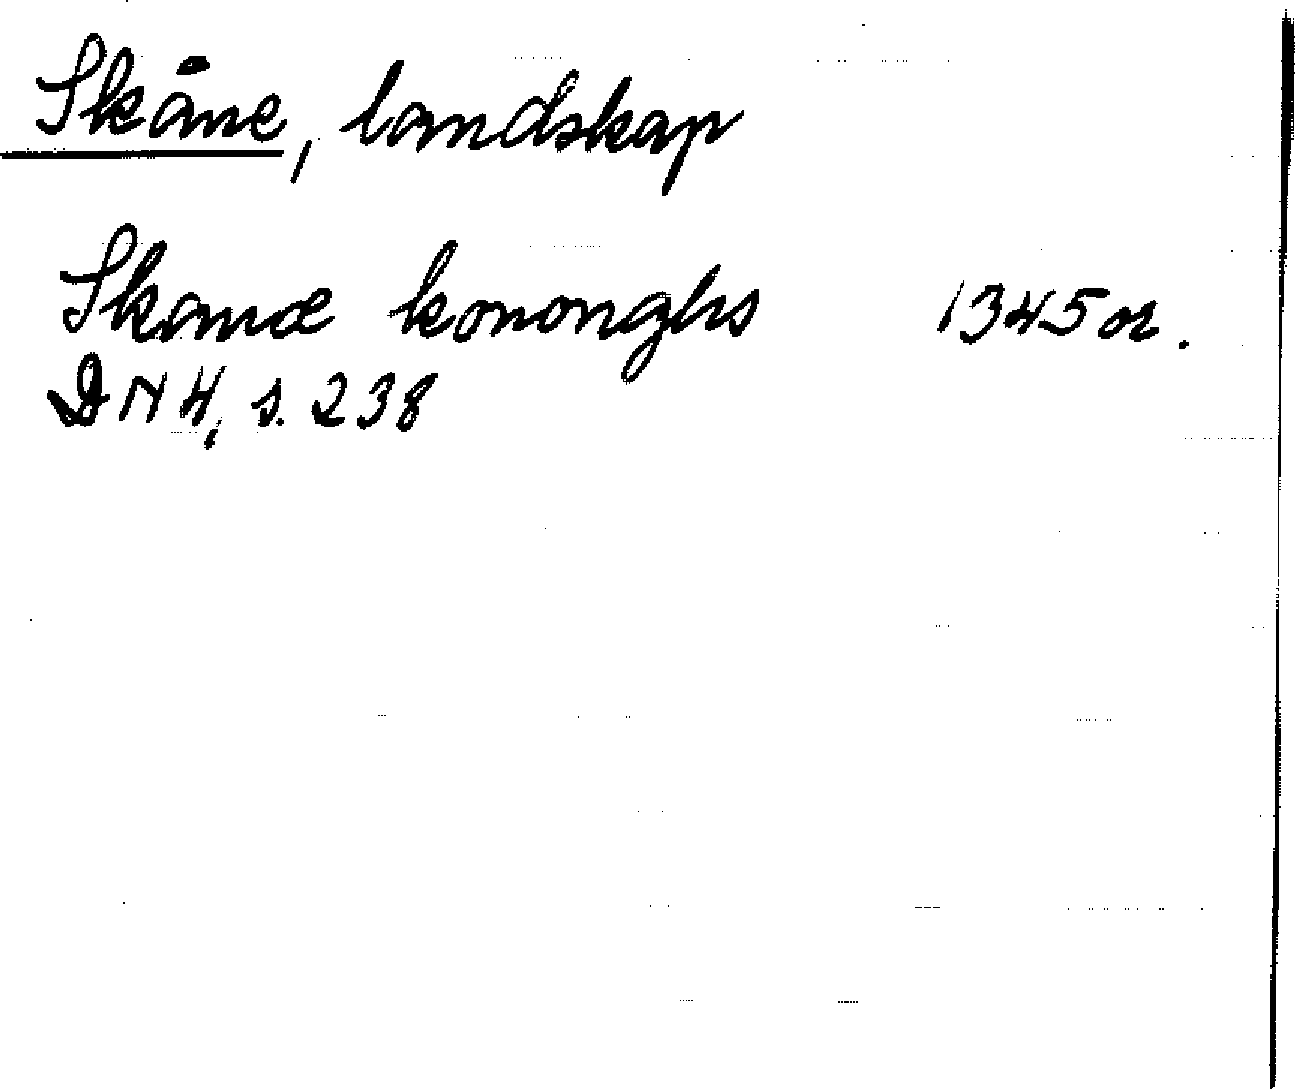 Skåne, landskap
Skanæ kononghs 1345 or.
DN 4, s. 238